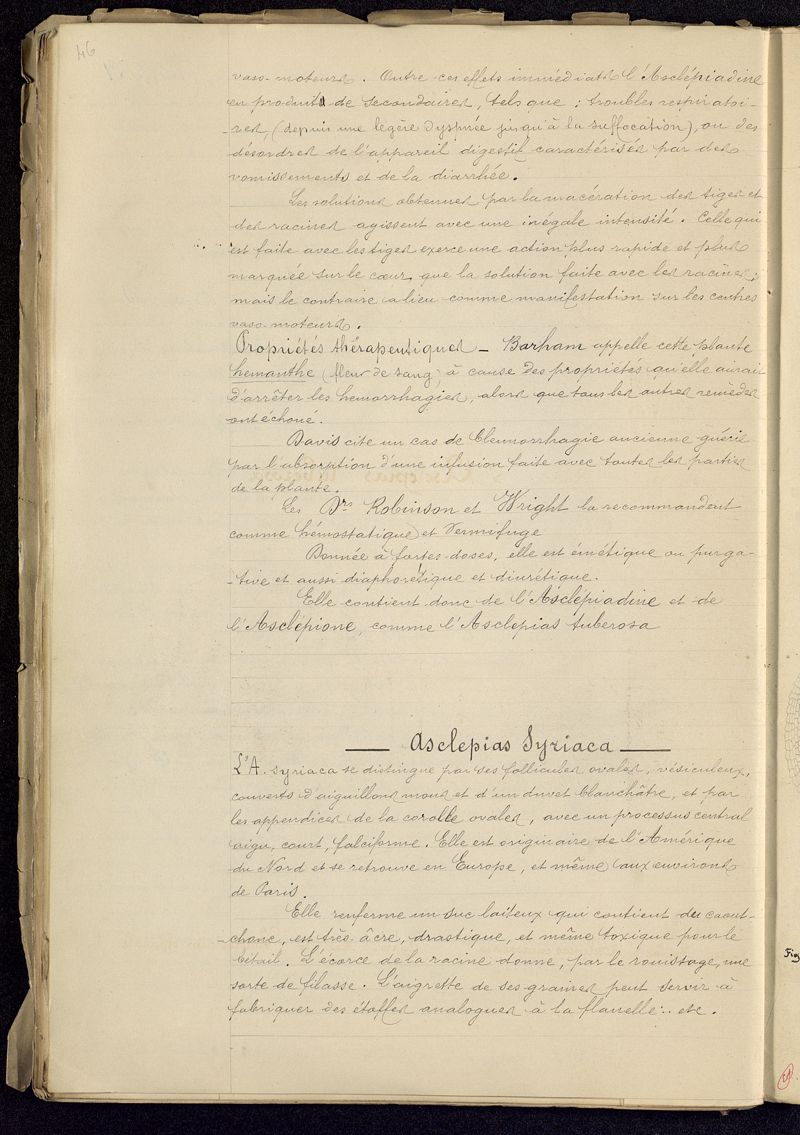 46
vaso-moteurs. Outre ces effets immédiats l'Asclépiadine
en produit de secondaires, tels que : troubles respiratoi-
-res, (depuis une légère dyspnée jusqu'à la suffocation), ou des
désordres de l'appareil digestif caractérisés par des
vomissements et de la diarrhée.
Les solutions obtenues par la macération des tiges et
des racines agissent avec une inégale intensité. Celle qui
est faite avec les tiges exerce une action plus rapide et plus
marquée sur le cœur, que la solution faite avec les racines;
mais le contraire a lieu comme manifestation sur les centres
vaso-moteurs.
Propriétés thérapeutiques — Barham appelle cette plante
hemanthe (fleur de sang) à cause des propriétés qu'elle aurait
d'arrêter les hemorrhagies, alors que tous les autres remèdes
ont échoué.
Davis cite un cas de blennorrhagie ancienne guérie
par l'absorption d'une infusion faite avec toutes les parties
de la plante.
Les Drs Robinson et Wright la recommandent
comme hémostatique et vermifuge
Donnée à fortes doses, elle est émétique ou purga-
-tive et aussi diaphorétique et diurétique.
Elle contient donc de l'Asclépiadine et de
l'Asclépione, comme l'Asclepias tuberosa
— Asclepias Syriaca —
L'A. syriaca se distingue par ses follicules ovales, vésiculeux,
couverts d'aiguillons mous et d'un duvet blanchâtre, et par
les appendices de la corolle ovales, avec un processus central
aigu, court, falciforme. Elle est originaire de l'Amérique
du Nord et se retrouve en Europe, et même aux environs
de Paris.
Elle renferme un suc laiteux qui contient du caout-
-chouc, est très âcre, drastique, et même toxique pour le
bétail. L'écorce de la racine donne, par le rouissage, une
sorte de filasse. L'aigrette de ses graines peut servir à
fabriquer des étoffes analogues à la flanelle... etc.
Fig